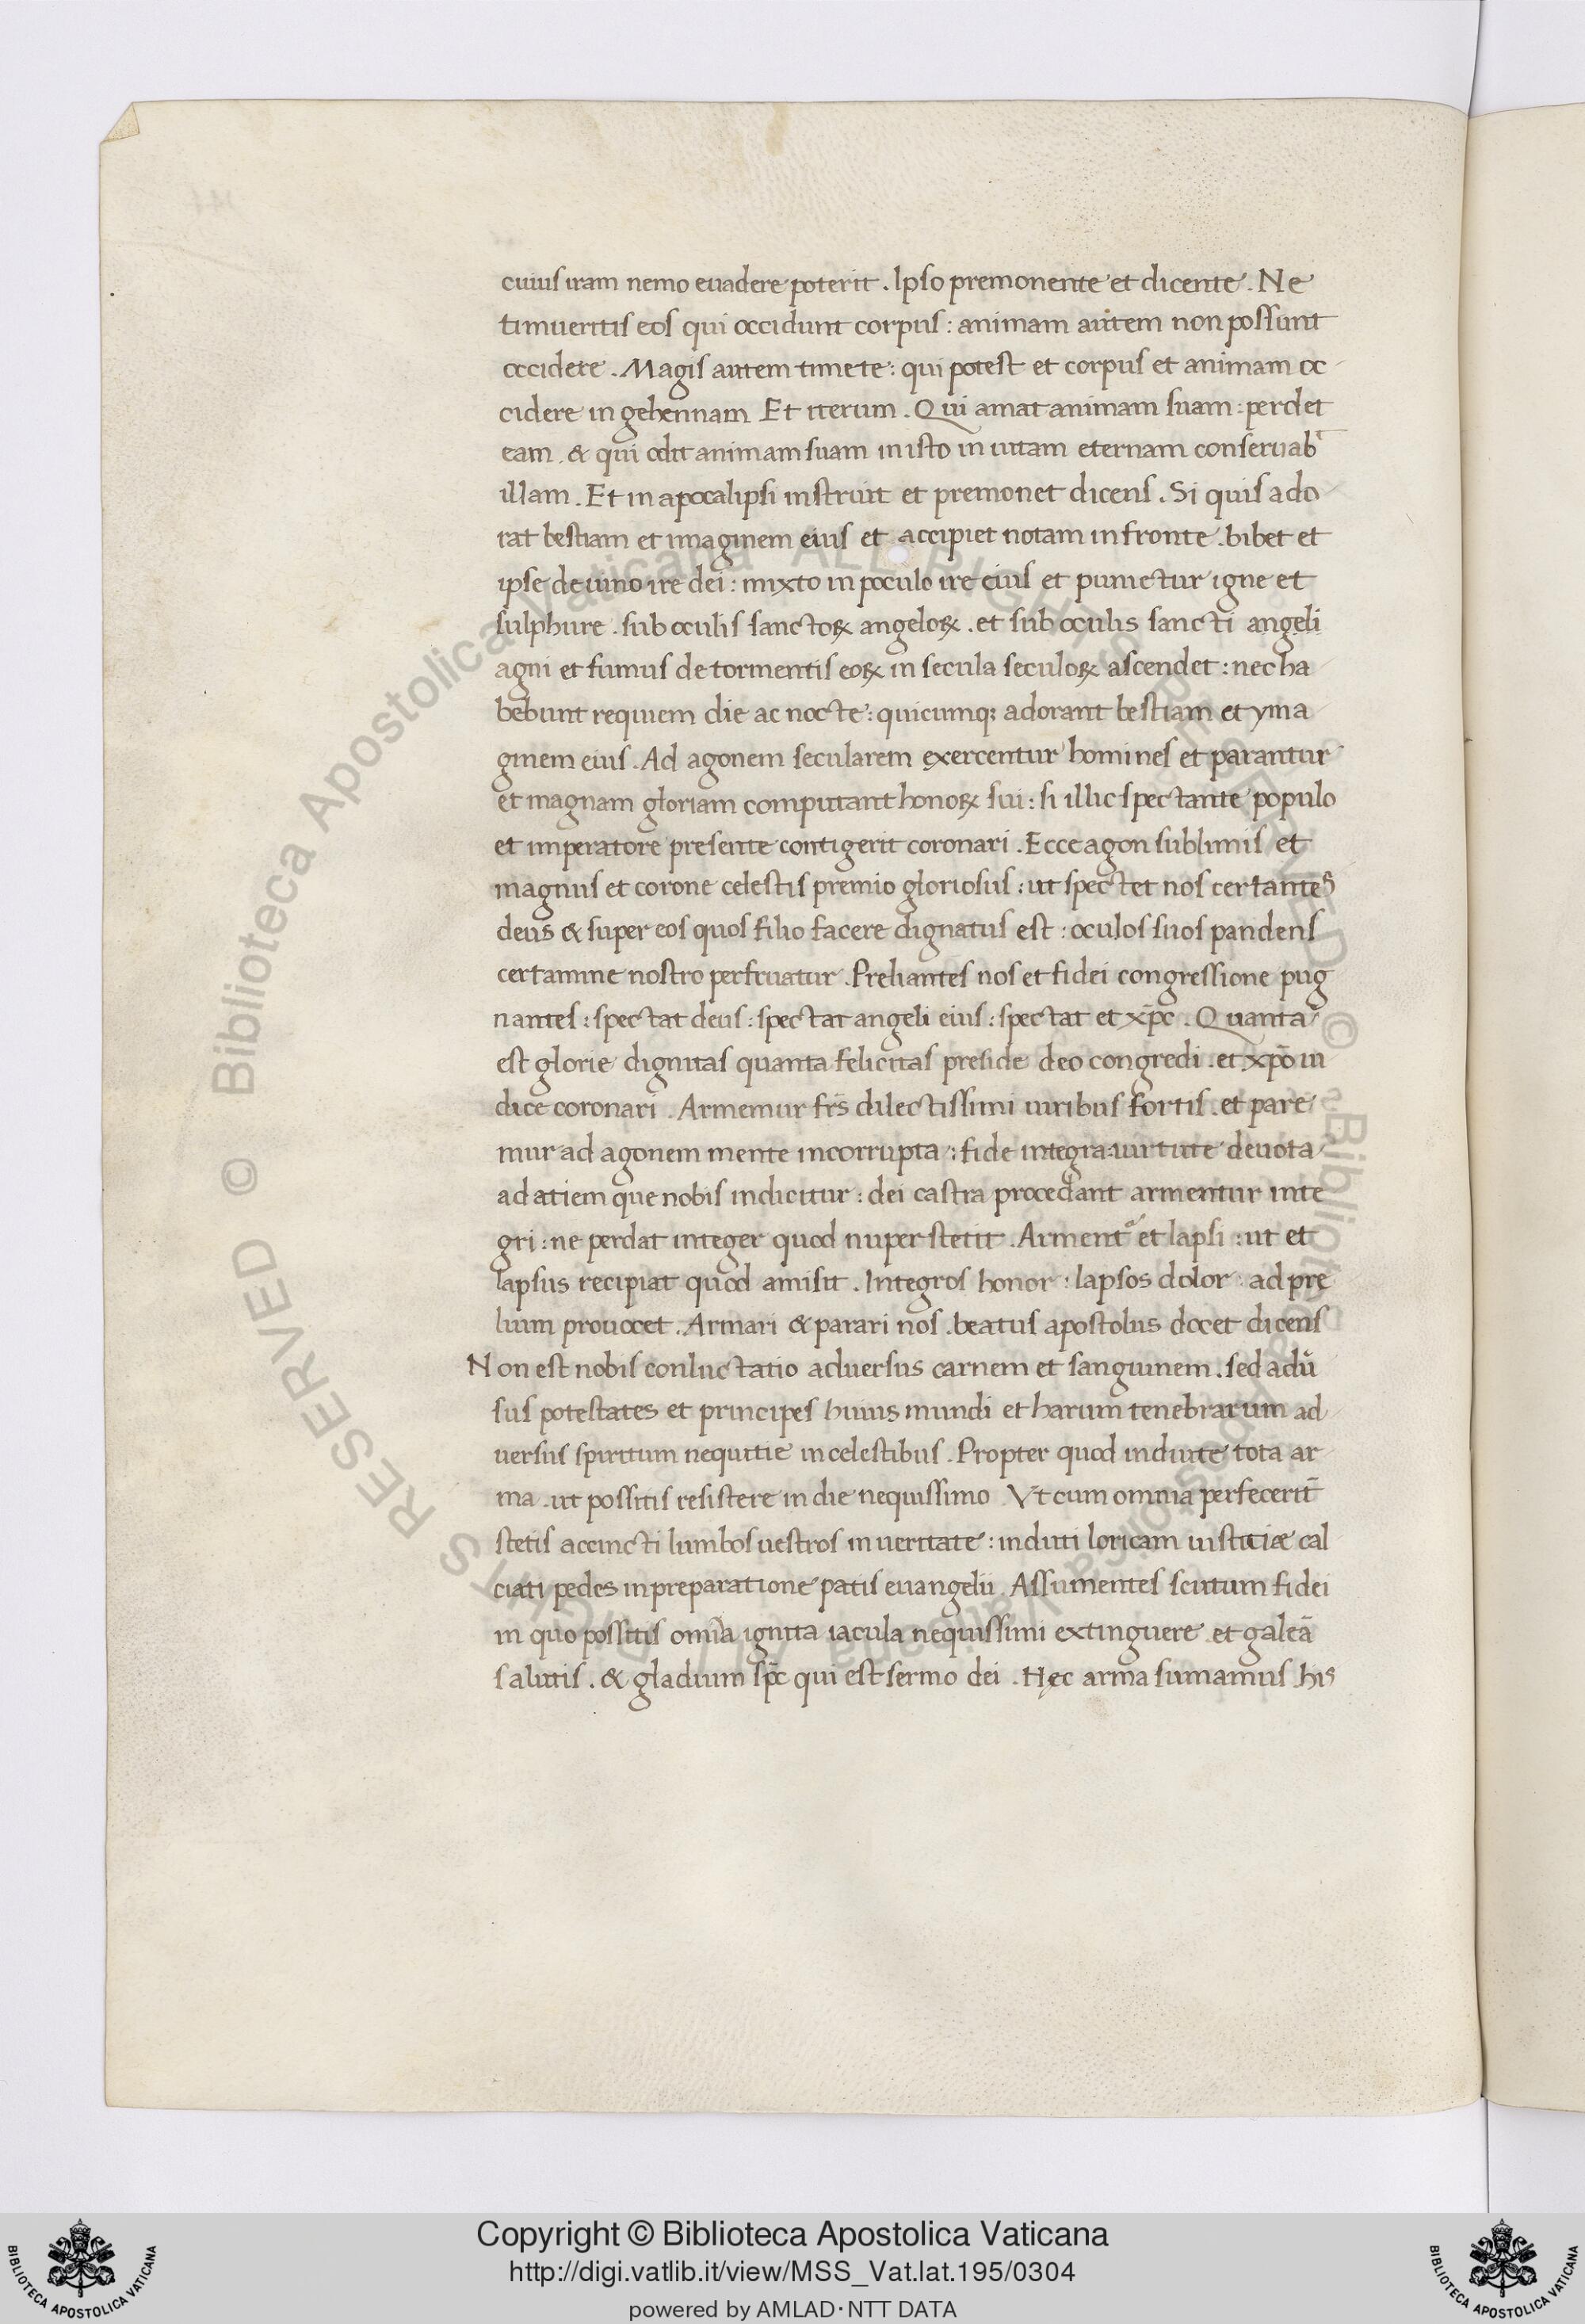 cuius iram nemo euadere poterit . Ipso premonente et dicente . Ne
timueritis eos qui occidunt corpus : animam autem non possunt
occidere . Magis autem timete : qui potest et corpus et animam oc-
cidere in gehennam Et iterum . Qui amat animam suam : perdet
eam . & qui odit animam suam in isto in uitam eternam conseruab̄
illam . Et in apocalipsi instruit et premonet dicens . Si quis ado-
rat bestiam et imaginem eius et accipiet notam in fronte . bibet et
ipse de uino ire dei : mixto in poculo ire eius et punietur igne et
sulphure . sub oculis sanctoꝝ angeloꝝ . et sub oculis sancti angeli
agni et fumus de tormentis eoꝝ in secula seculoꝝ ascendet : nec ha-
bebunt requiem die ac nocte : quicumqꝫ adorant bestiam et yma-
ginem eius . Ad agonem secularem exercentur homines et parantur
et magnam gloriam computant honoꝝ sui : si illic spectante populo
et imperatore presente contigerit coronari . Ecce agon sublimis et
magnus et corone celestis premio gloriosus : ut spectet nos certantes
deus & super eos quos filio facere dignatus est : oculos suos pandens
certamine nostro perfruatur . Preliantes nos et fidei congressione pug
nantes : spectat deus : spectat angeli eius : spectat et xp̄c . Quanta
est glorie dignitas quanta felicitas preside deo congredi . et xp̄o iu
dice coronari . Armemur fr̄s dilectissimi uiribus fortis . et pare-
mur ad agonem mente incorrupta : fide integra : uirtute deuota
ad atiem que nobis indicitur : dei castra procedant armentur inte
gri : ne perdat integer quod nuper stetit . Arment᷑ et lapsi : ut et
lapsus recipiat quod amisit . Integros honor : lapsos dolor : ad pre
lium prouocet . Armari & parari nos . beatus apostolus docet dicens
Non est nobis conluctatio aduersus carnem et sanguinem . sed adu᷑
sus potestates et principes huius mundi et harum tenebrarum ad-
uersus spiritum nequitie in celestibus . Propter quod induite tota ar-
ma . ut possitis resistere in die nequissimo Vt cum omnia perfecerit̄
stetis accincti lumbos uestros in ueritate : induti loricam iusticiæ cal
ciati pedes in preparatione patis euangelii . Assumentes scutum fidei
in quo possitis omnia ignita iacula nequissimi extinguere . et galeā
salutis . & gladium sp̄c qui est sermo dei . Hęc arma sumamus his
Copyright © Biblioteca Apostolica Vaticana
http://digi.vatlib.it/view/MSS_Vat.lat.195/0304
powered by AMLAD·NTT DATA
BIBLIOTECA APOSTOLICA VATICANA
BIBLIOTECA APOSTOLICA VATICANA